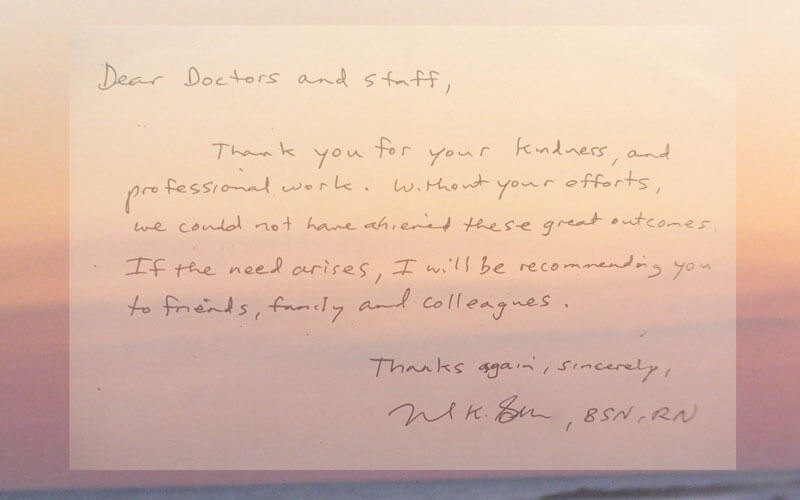 Dear Doctors and staff,
Thank you for your kindness, and
professional work. Without your efforts,
we could not have ahieved these great outcomes.
If the need arises, I will be recommending you
to friends, family and colleagues.
Thanks again, sincerely,
K. , BSN, RN